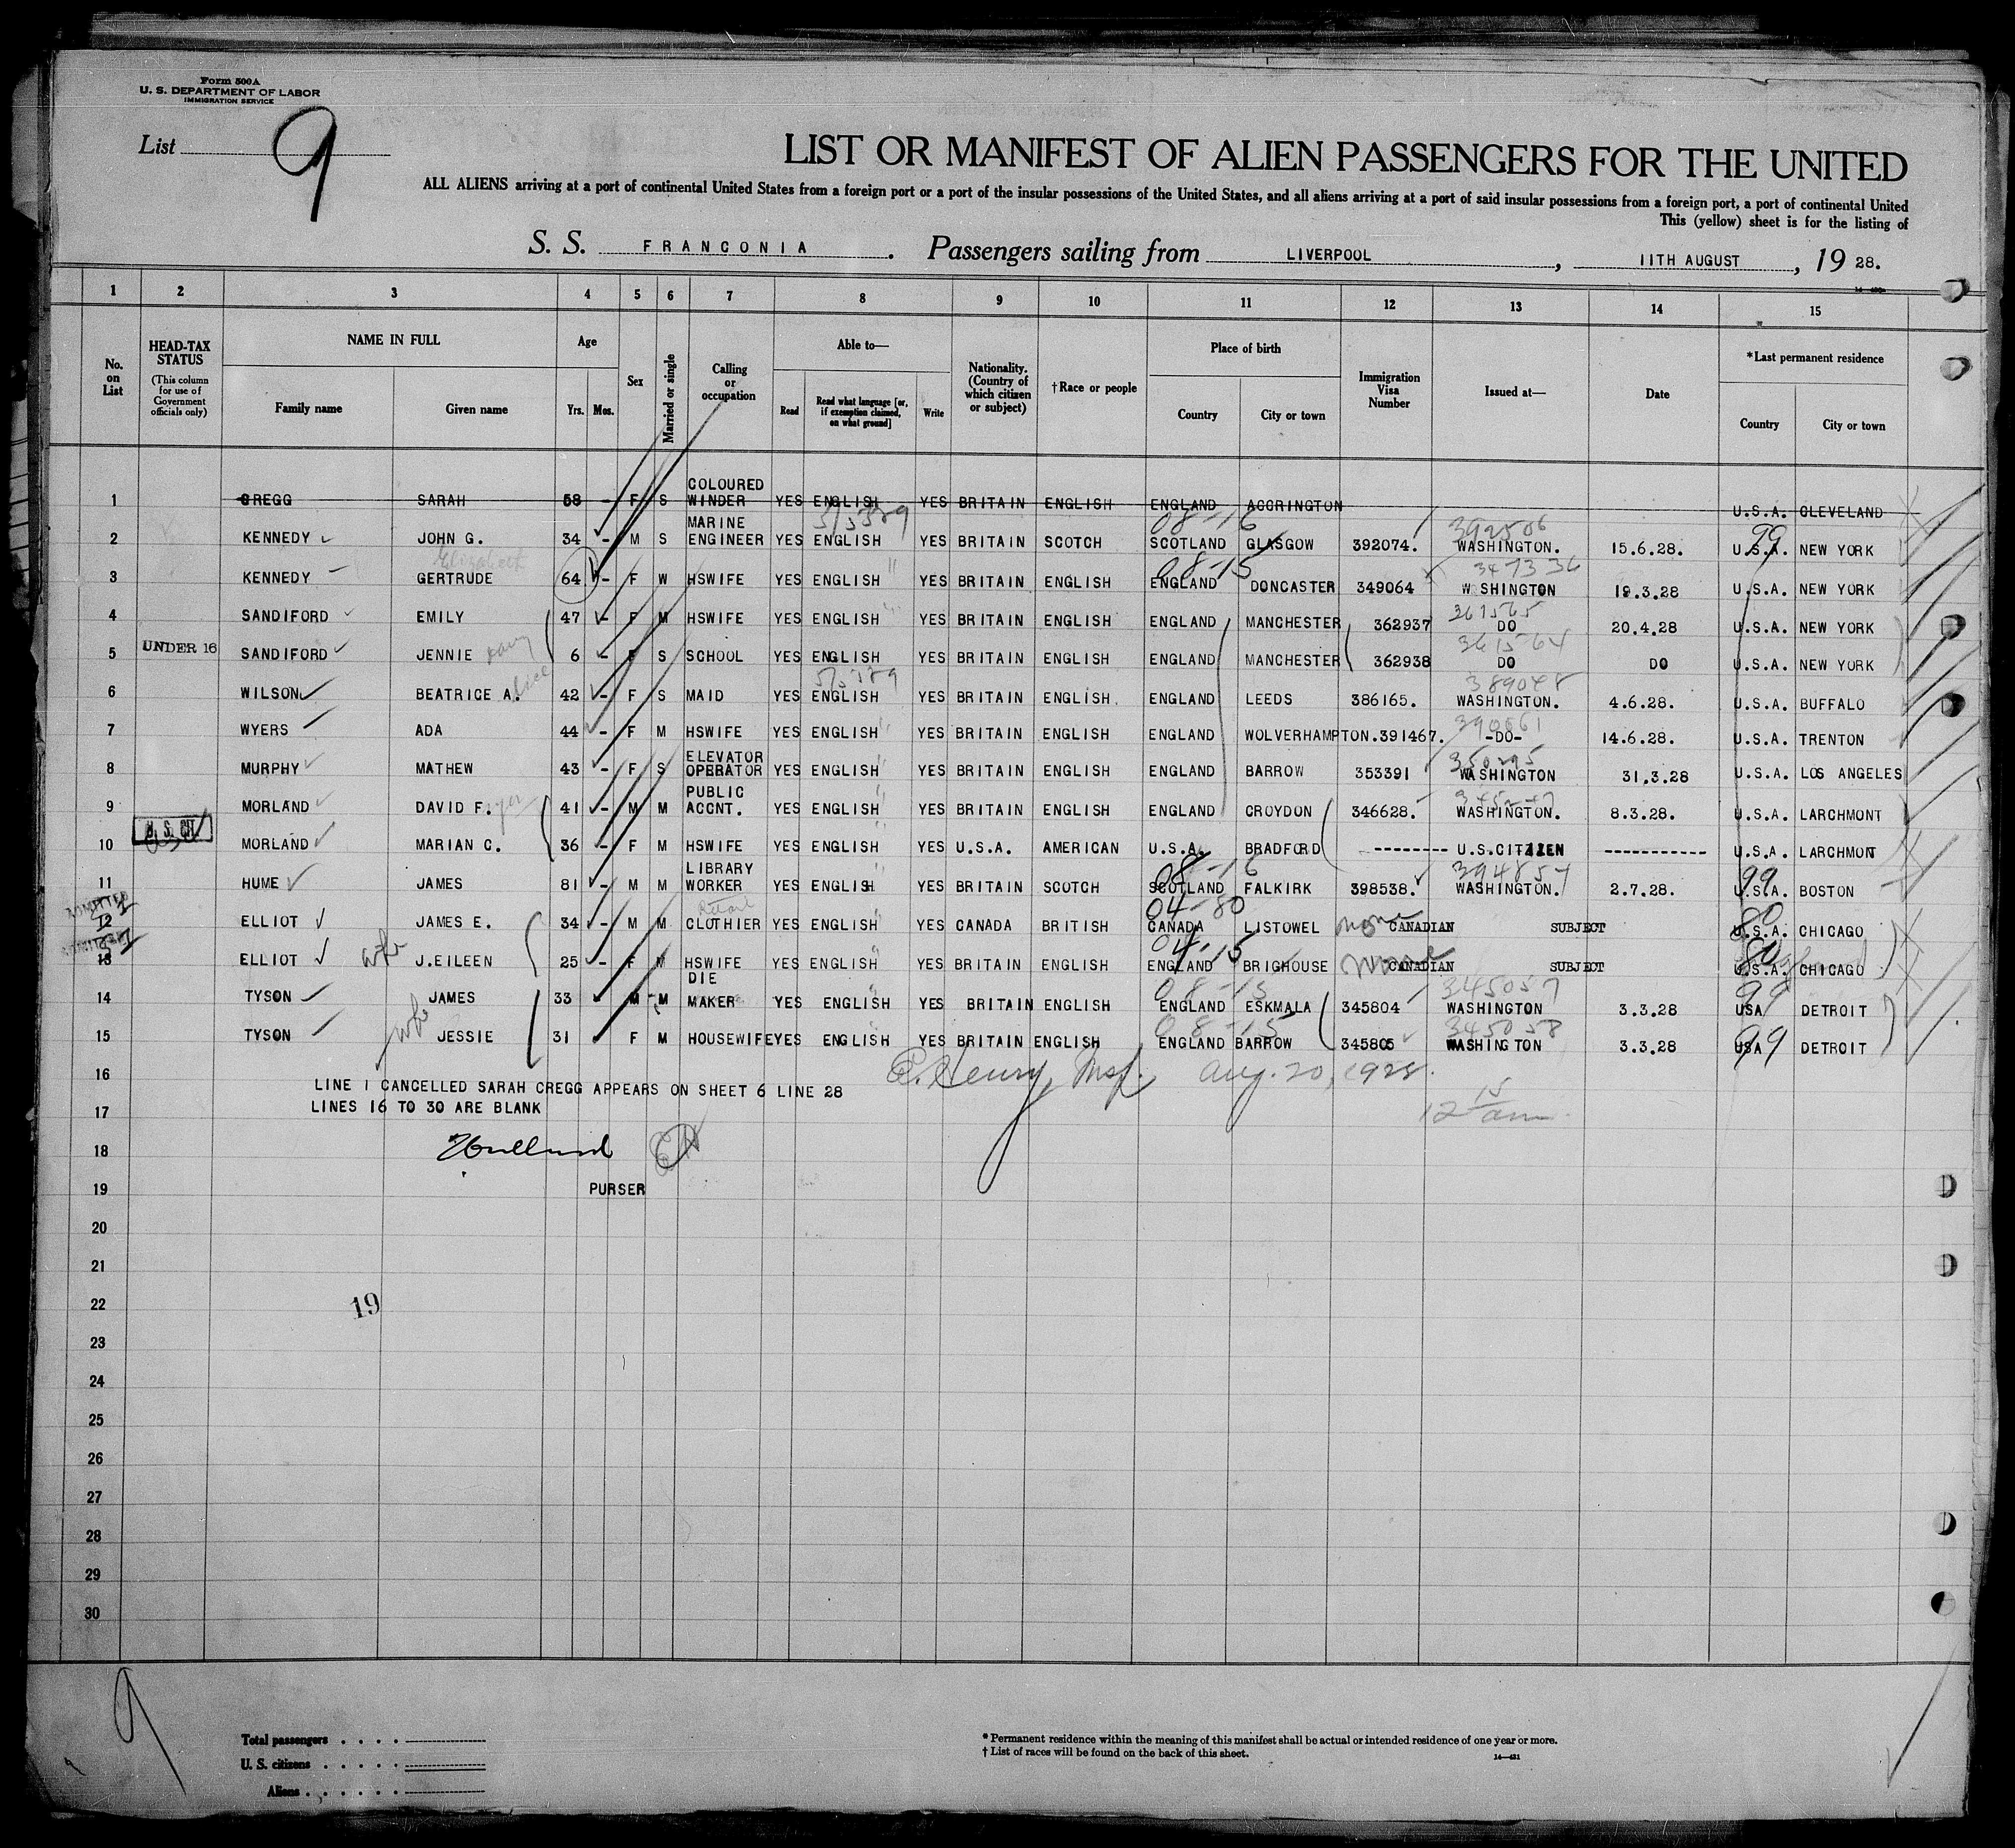 Form 500A
U. S. DEPARTMENT OF LABOR
IMMIGRATION SERVICE
List 9
LIST OR MANIFEST OF ALIEN PASSENGERS FOR THE UNITED
ALL ALIENS arriving at a port of continental United States from a foreign port or a port of the insular possessions of the United States, and all aliens arriving at a port of said insular possessions from a foreign port, a port of continental United
This (yellow) sheet is for the listing of
S. S. FRANCONIA. Passengers sailing from LIVERPOOL, 11TH AUGUST, 19 28.
1 2 3 4 5 6 7 8 9 10 11 12 13 14 15
No. on List
HEAD-TAX STATUS
(This column for use of Government officials only)
NAME IN FULL
Family name Given name
Age
Yrs. Mos.
Sex
Married or single
Calling or occupation
Able to—
Read
Read what language [or, if exemption claimed, on what ground]
Write
Nationality. (Country of which citizen or subject)
†Race or people
Place of birth
Country City or town
Immigration Visa Number
Issued at—
Date
*Last permanent residence
Country City or town
1 GREGG SARAH 58 - F S COLOURED WINDER YES ENGLISH YES BRITAIN ENGLISH ENGLAND ACCRINGTON U.S.A. CLEVELAND
2 KENNEDY JOHN G. 34 - M S MARINE ENGINEER YES ENGLISH YES BRITAIN SCOTCH 08-16 SCOTLAND GLASGOW 392074. 392506 WASHINGTON. 15.6.28. 99 U.S.A. NEW YORK
3 KENNEDY Elizabeth GERTRUDE 64 - F W HSWIFE YES ENGLISH " YES BRITAIN ENGLISH 08-15 ENGLAND DONCASTER 349064 347336 W SHINGTON 19.3.28 U.S.A. NEW YORK
4 SANDIFORD EMILY 47 - F M HSWIFE YES ENGLISH " YES BRITAIN ENGLISH ENGLAND MANCHESTER 362937 361565 DO 20.4.28 U.S.A. NEW YORK
5 UNDER 16 SANDIFORD JENNIE 6 - F S SCHOOL YES ENGLISH YES BRITAIN ENGLISH ENGLAND MANCHESTER 362938 361564 DO DO U.S.A. NEW YORK
6 WILSON BEATRICE A. lice 42 - F S MAID YES ENGLISH YES BRITAIN ENGLISH. ENGLAND LEEDS 386165. 389048 WASHINGTON. 4.6.28. U.S.A. BUFFALO
7 WYERS ADA 44 - F M HSWIFE YES ENGLISH " YES BRITAIN ENGLISH ENGLAND WOLVERHAMPTON. 391467. -DO- 14.6.28. U.S.A. TRENTON
8 MURPHY MATHEW 43 - F S ELEVATOR OPERATOR YES ENGLISH " YES BRITAIN ENGLISH ENGLAND BARROW 353391 350295 WASHINGTON 31.3.28 U.S.A. LOS ANGELES
9 MORLAND DAVID F. 41 - M M PUBLIC ACCNT. YES ENGLISH " YES BRITAIN ENGLISH ENGLAND CROYDON 346628. WASHINGTON. 8.3.28. U.S.A. LARCHMONT
10 MORLAND MARIAN C. 36 - F M HSWIFE YES ENGLISH " YES U.S.A. AMERICAN U.S.A. BRADFORD -------- U.S.CITIZEN ----------- U.S.A. LARCHMONT
11 HUME JAMES 81 - M M LIBRARY WORKER YES ENGLISH " YES BRITAIN SCOTCH 08-16 SCOTLAND FALKIRK 398538. 394857 WASHINGTON. 2.7.28. 99 U.S.A. BOSTON
ADMITTED 12 ELLIOT JAMES E. 34 - M M CLOTHIER YES ENGLISH " YES CANADA BRITISH 04-80 CANADA LISTOWEL none CANADIAN SUBJECT 80 U.S.A. CHICAGO
ADMITTED 13 ELLIOT wife J.EILEEN 25 - F M HSWIFE YES ENGLISH " YES BRITAIN ENGLISH 04-15 ENGLAND BRIGHOUSE none CANADIAN SUBJECT 80 U.S.A. CHICAGO
14 TYSON JAMES 33 M M DIE MAKER YES ENGLISH " YES BRITAIN ENGLISH 08-15 ENGLAND ESKMALA 345804 345057 WASHINGTON 3.3.28 99 USA DETROIT
15 TYSON wife JESSIE 31 F M HOUSEWIFE YES ENGLISH " YES BRITAIN ENGLISH 08-15 ENGLAND BARROW 345805 345058 WASHINGTON 3.3.28 99 USA DETROIT
16 LINE 1 CANCELLED SARAH CREGG APPEARS ON SHEET 6 LINE 28 E. Henry, Insp. Aug. 20, 1928.
17 LINES 16 TO 30 ARE BLANK 12 15 am
18
19 PURSER
20
21
22 19
23
24
25
26
27
28
29
30
9
Total passengers . . . .
U. S. citizens . . . . .
Aliens . . . . . .
* Permanent residence within the meaning of this manifest shall be actual or intended residence of one year or more.
† List of races will be found on the back of this sheet. 14—431